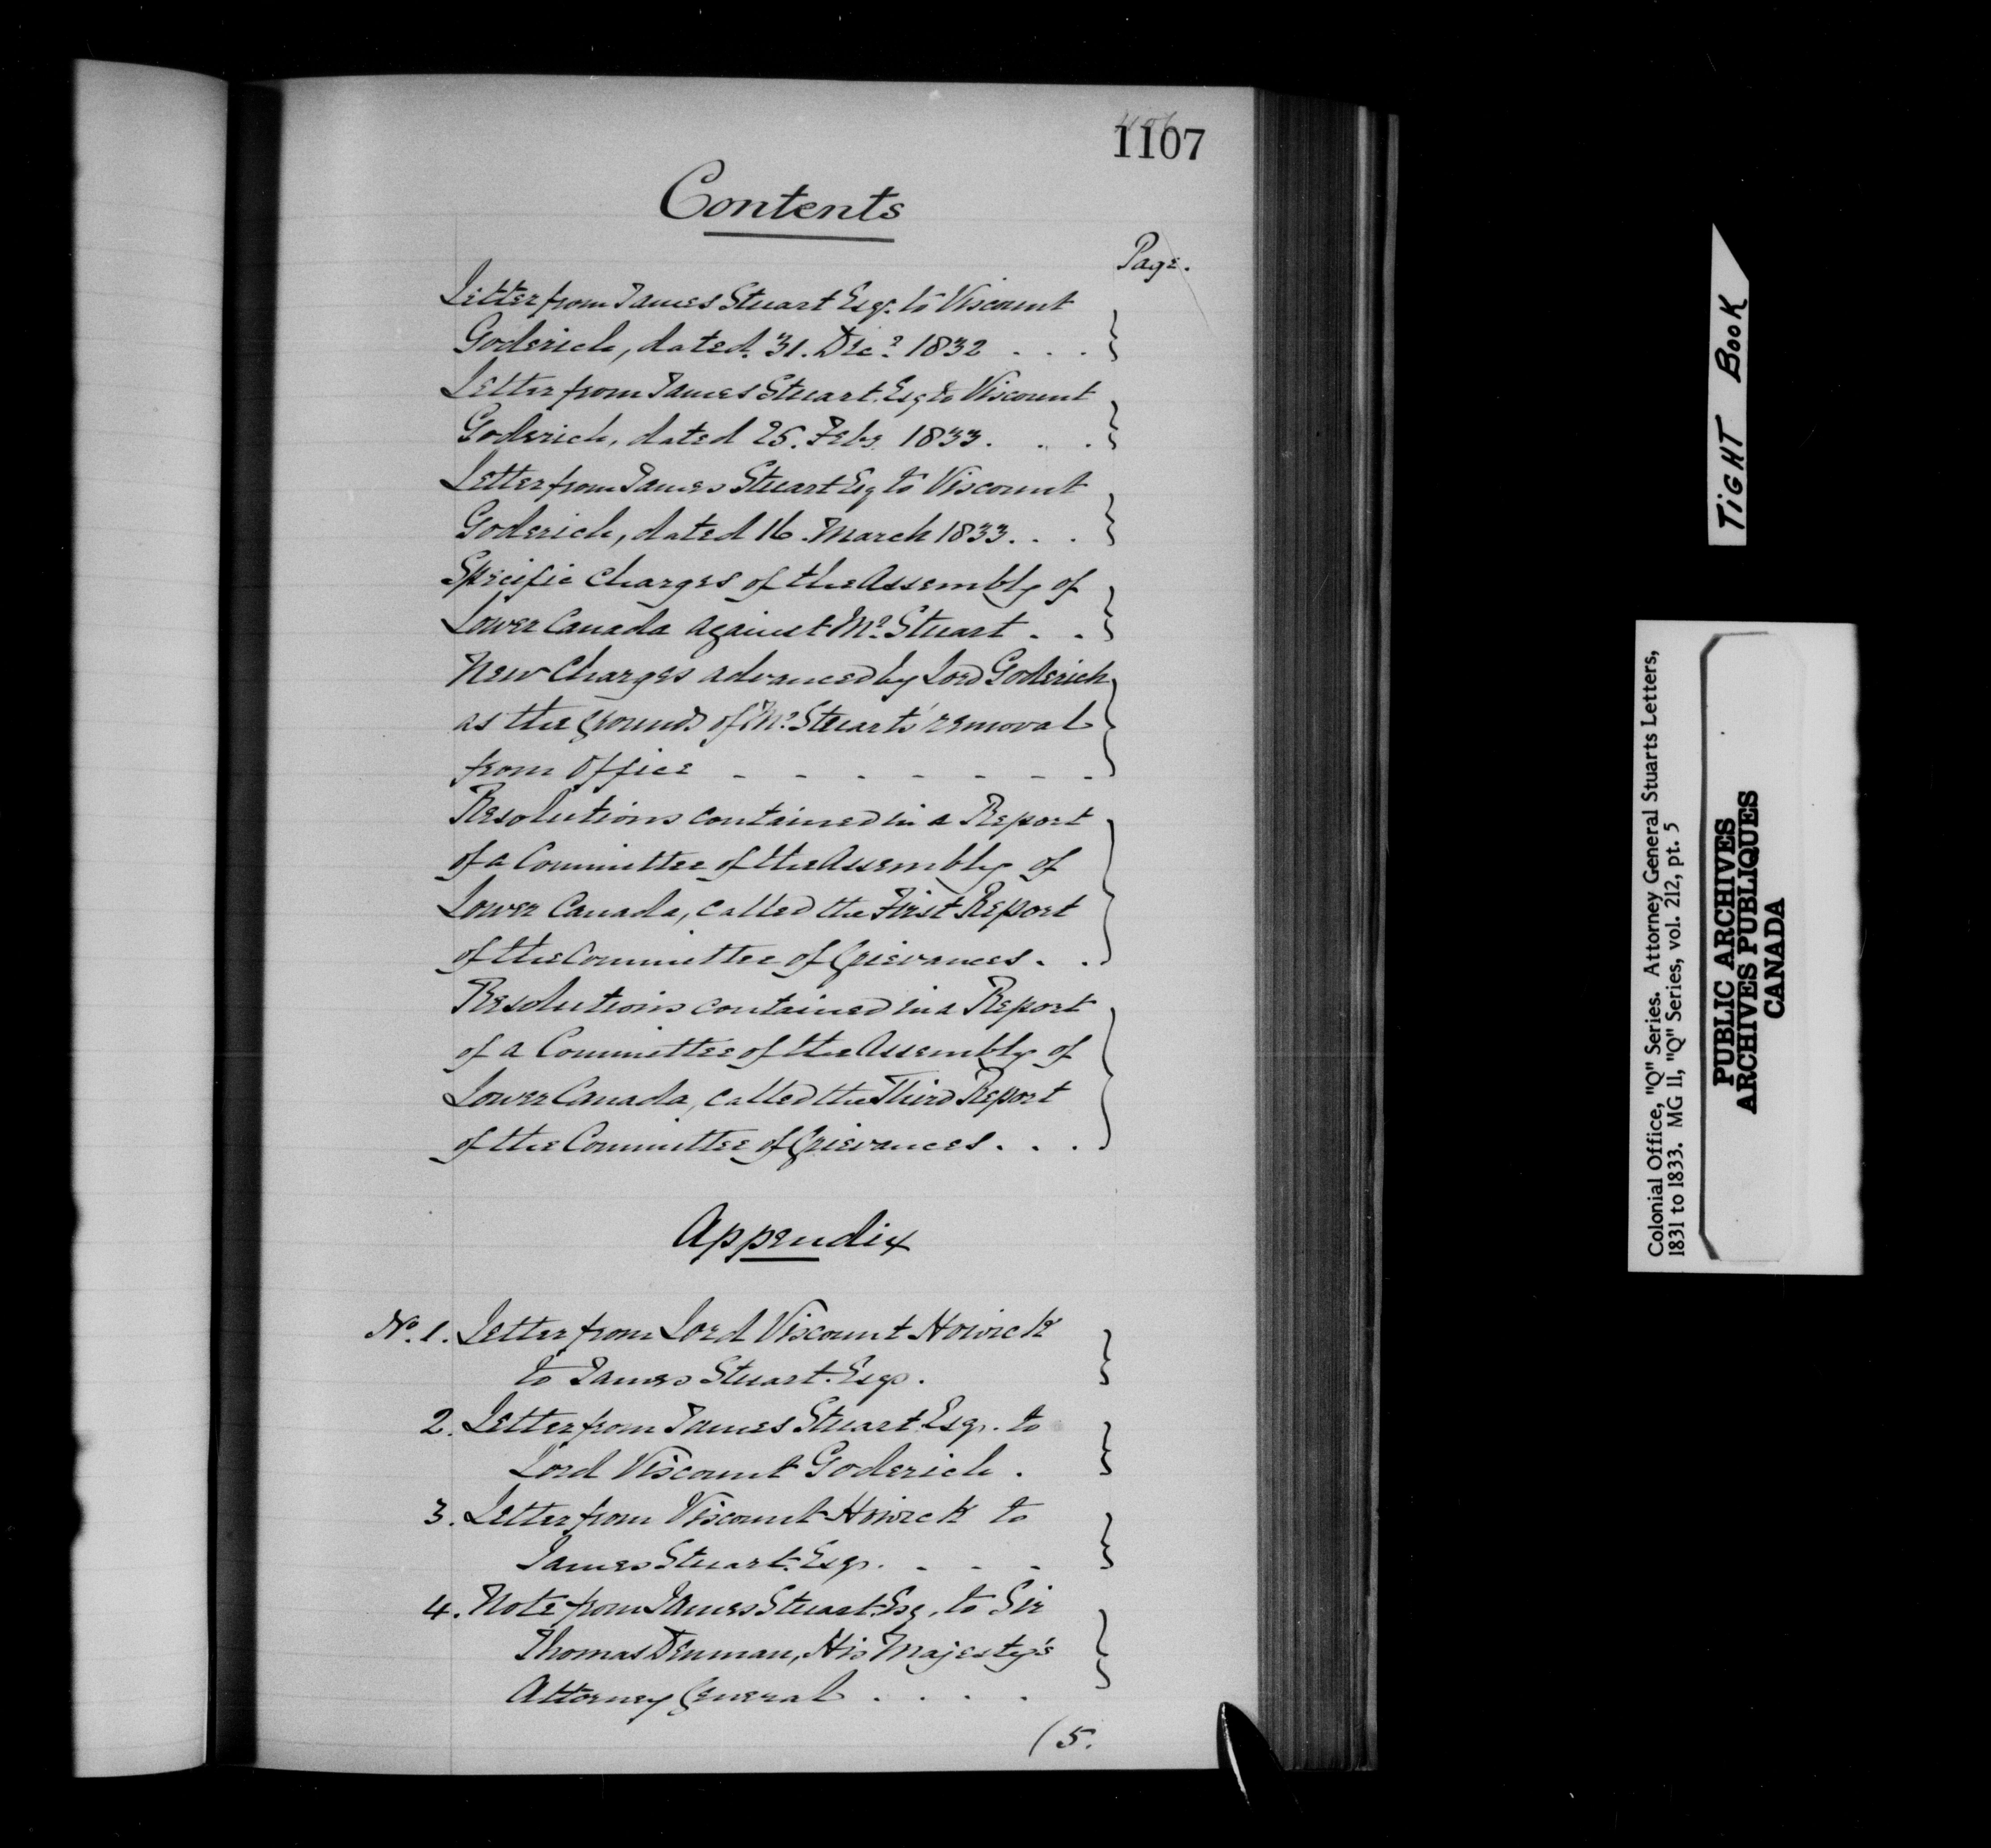 1107
Contents
Page.
Letter from James Stuart Esqr. to Viscount
Goderich, dated 31. Decr 1832 . . .
Letter from James Stuart. Esq to Viscount
Goderich, dated 25. Feby. 1833. . .
Letter from James Stuart Esq to Viscount
Goderich, dated 16. March 1833. . .
Specific charges of the Assembly of
Lower Canada against Mr. Stuart . .
New Charges advanced by Lord Goderich
as the ground of Mr. Stuart's removal
from Office - - - - - - -
Resolutions contained in a Report
of a Committee of the Assembly of
Lower Canada, called the First Report
of the Committee of Grievances . .
Resolutions contained in a Report
of a Committee of the Assembly of
Lower Canada, called the Third Report
of the Committee of Grievances . . .
Appendix
No. 1. Letter from Lord Viscount Howick
to James Stuart. Esqr.
2. Letter from James Stuart Esqr. to
Lord Viscount Goderich .
3. Letter from Viscount Howick to
James Stuart. Esqr. - - -
4. Note from James Stuart Esq. to Sir
Thomas Denman, His Majesty's
Attorney General . . . .
(5.
TIGHT BOOK
Colonial Office, "Q" Series. Attorney General Stuarts Letters,
1831 to 1833. MG 11, "Q" Series, vol. 212, pt. 5
PUBLIC ARCHIVES
ARCHIVES PUBLIQUES
CANADA